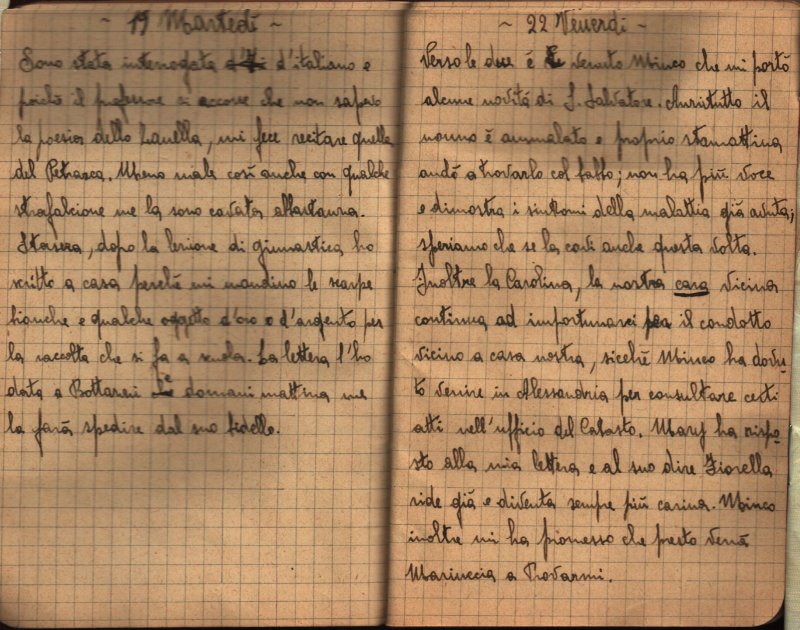 ~ 19 Martedì ~
Sono stata interrogata d'italiano e
poichè il professore si accorse che non sapevo
la poesia dello Zanella, mi fece recitare quella
del Petrarca. Meno male così anche con qualche
strafalcione me la sono cavata abbastanza.
Stasera, dopo la lezione di ginnastica ho
scritto a casa perchè mi mandino le scarpe
bianche e qualche oggetto d'oro o d'argento per
la raccolta che si fa a scuola. La lettera l'ho
data a Bottazzi e domani mattina me
la farà spedire dal suo bidello.
~ 22 Venerdì ~
Verso le due è venuto Minco che mi portò
alcune novità di S. Salvatore. Anzitutto il
nonno è ammalato e proprio stamattina
andò a trovarlo col babbo; non ha più voce
e dimostra i sintomi della malattia già avuta;
speriamo che se la cavi anche questa volta.
Inoltre la Carolina, la nostra cara vicina
continua ad importunarci per il condotto
vicino a casa nostra, sicchè Minco ha dovu-
to venire in Alessandria per consultare certi
atti nell'ufficio del Catasto. Mary ha rispo-
sto alla mia lettera e al suo dire Fiorella
ride già e diventa sempre più carina. Minco
inoltre mi ha promesso che presto verrà
Mariuccia a trovarmi.